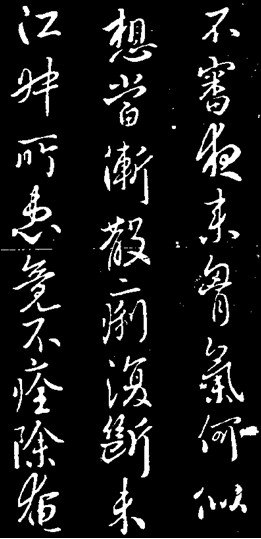 不審夜來胷氣何似
想當漸散二痢復斷未
江妹所患竟不痊除